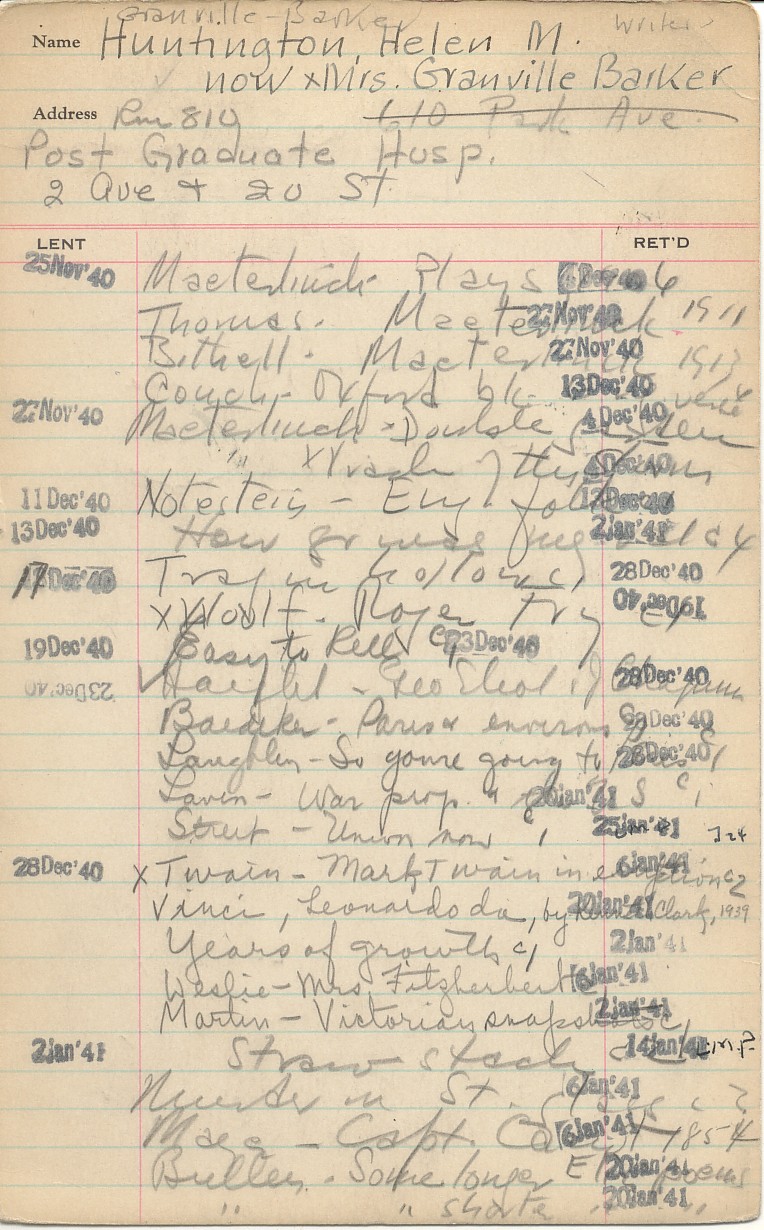 Granville-Barker Writer
Name Huntington, Helen M.
now x Mrs. Granville Barker
Address Rm 810 610 Park Ave.
Post Graduate Hosp.
2 Ave + 20 St
LENT RET'D
25 Nov '40 Maeterlinck Plays Dec '40
Thomas. Maeterlinck 1911 27 Nov '40
Bithell. Maeterlinck 1913 27 Nov '40
Couch - Oxford bk. verse 13 Dec '40
27 Nov '40 Maeterlinck - Double garden 4 Dec '40
" x Wrack of the storm Dec '40
11 Dec '40 Notestein - Eng. folk Dec '40
13 Dec '40 How green c4 2 Jan '41
17 Dec '40 Trag in hollow c1 28 Dec '40
x Woolf. Roger Fry c1 19 Dec '40
19 Dec '40 Easy to kill 23 Dec '40
23 Dec '40 ✓ Geo Eliot 28 Dec '40
Baedeker - Paris & environs 28 Dec '40
Laughlin - So you're going to 28 Dec '40
Lavin - War prop. U S c1 20 Jan '41
Streit - Union now c1 25 Jan '41
28 Dec '40 x Twain - Mark Twain in eruption c2 6 Jan '41
Vinci, Leonardo da, by Kenneth Clark, 1939 20 Jan '41
Years of growth c1 2 Jan '41
Leslie - Mrs. Fitzherbert 6 Jan '41
Martin - Victorian snapshots c1 2 Jan '41
2 Jan '41 Straw stack 14 Jan '41
Murder in St. 6 Jan '41
Capt. 1854 6 Jan '41
Bullen - Some longer El. poems 20 Jan '41
" " shorter " " 20 Jan '41